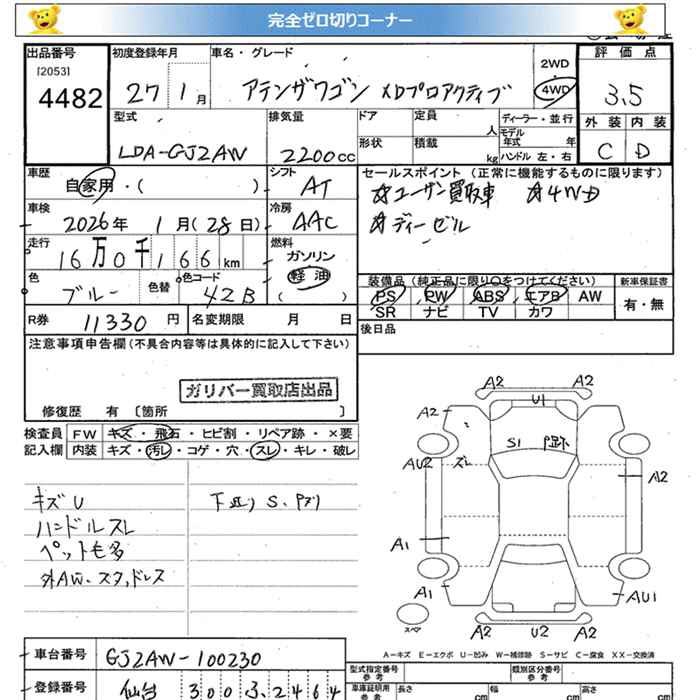 完全ゼロ切りコーナー
出品番号 初度登録年月 車名・グレード 2WD 評価点
[2053] 4482 27 1月 アテンザワゴン XDプロアクティブ 4WD 3.5
型式 排気量 ドア 定員 人 ディーラー・並行 外装 内装
LDA-GJ2AW 2200cc 形状 積載 kg モデル年式 年 ハンドル 左・右 C D
車歴 自家用・( ) シフト AT セールスポイント (正常に機能するものに限ります)
☆ユーザー買取車 ☆4WD
車検 2026年 1月(28日) 冷房 AAC ☆ディーゼル
走行 16万0千166km 燃料 ガソリン 軽油 ( )
色 ブルー 色替 色コード 42B
装備品 (純正品に限り○をつけてください) 新車保証書
PS PW ABS エアB AW 有・無
SR ナビ TV カワ
R券 11330円 名変期限 月 日 後日品
注意事項申告欄(不具合内容等は具体的に記入して下さい)
ガリバー買取店出品
修復歴 有 [箇所 ]
検査員 FW キズ・飛石・ヒビ割・リペア跡・×要
記入欄 内装 キズ・汚レ・コゲ・穴・スレ・キレ・破レ
キズU
ハンドルスレ
ペット毛多
外AW、スタッドレス
下廻り S、
A2 A2
A2 U1
S1
AU2 ズレ A2
A1
A1 AU1
A2 U2 A2
スペア
A−キズ E−エクボ U−凹み W−補修跡 S−サビ C−腐食 XX−交換済
車台番号 GJ2AW-100230
型式指定番号 参考 類別区分番号 参考
登録番号 仙台 300 2464
車庫証明用 参考 長さ cm 幅 cm 高さ cm